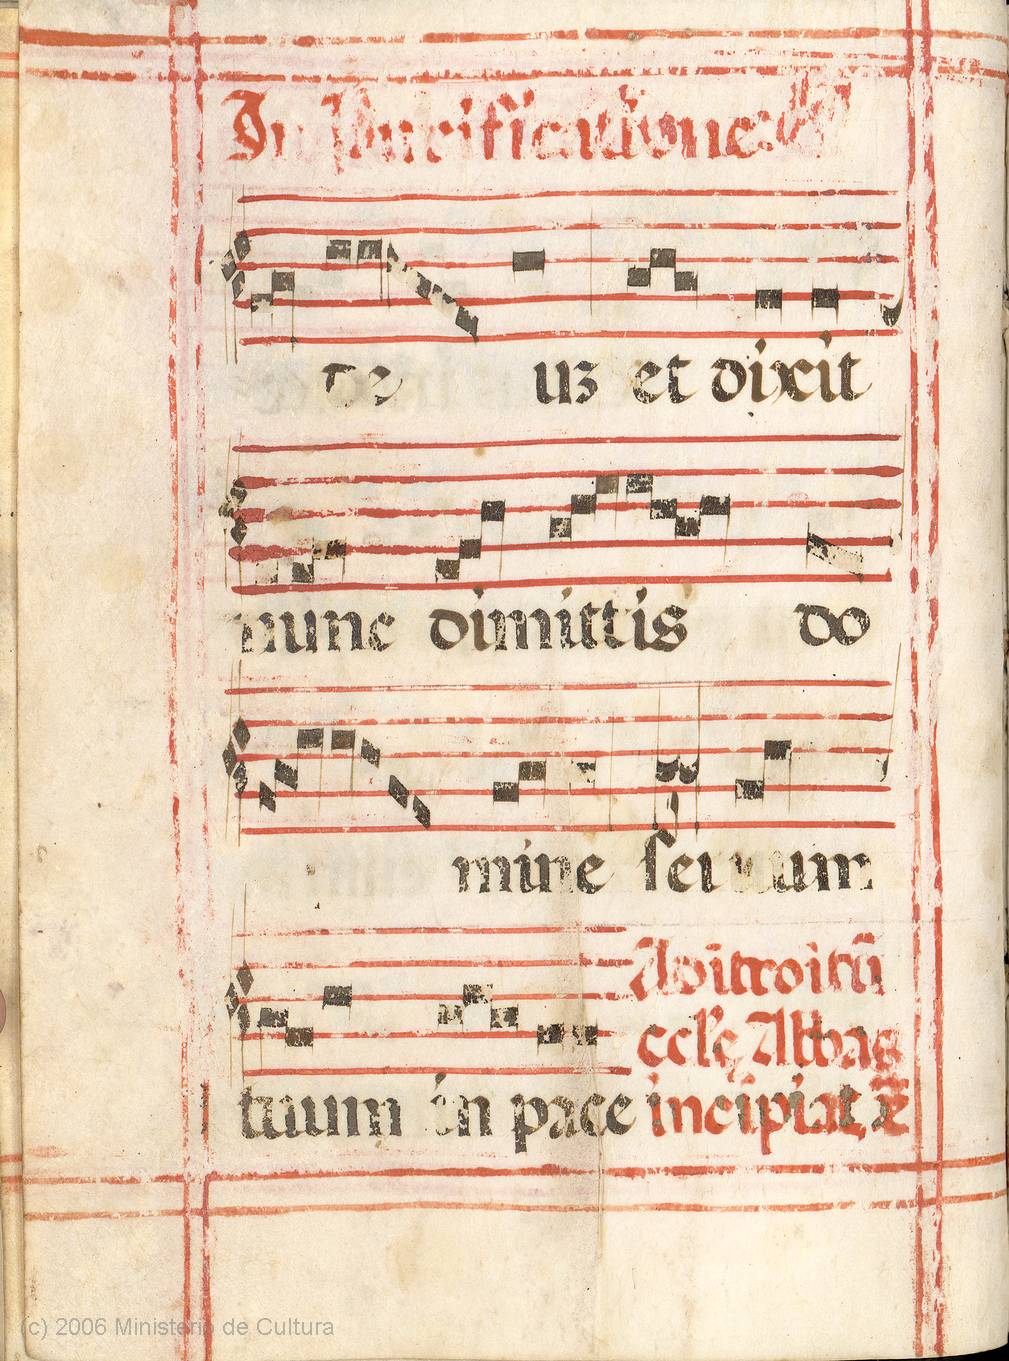 In Purificatione
de uz et dixit
nunc dimittis do
mine seruum
Abītroitū
eccle Abbas
tuum in pace incipiat
(c) 2006 Ministerio de Cultura